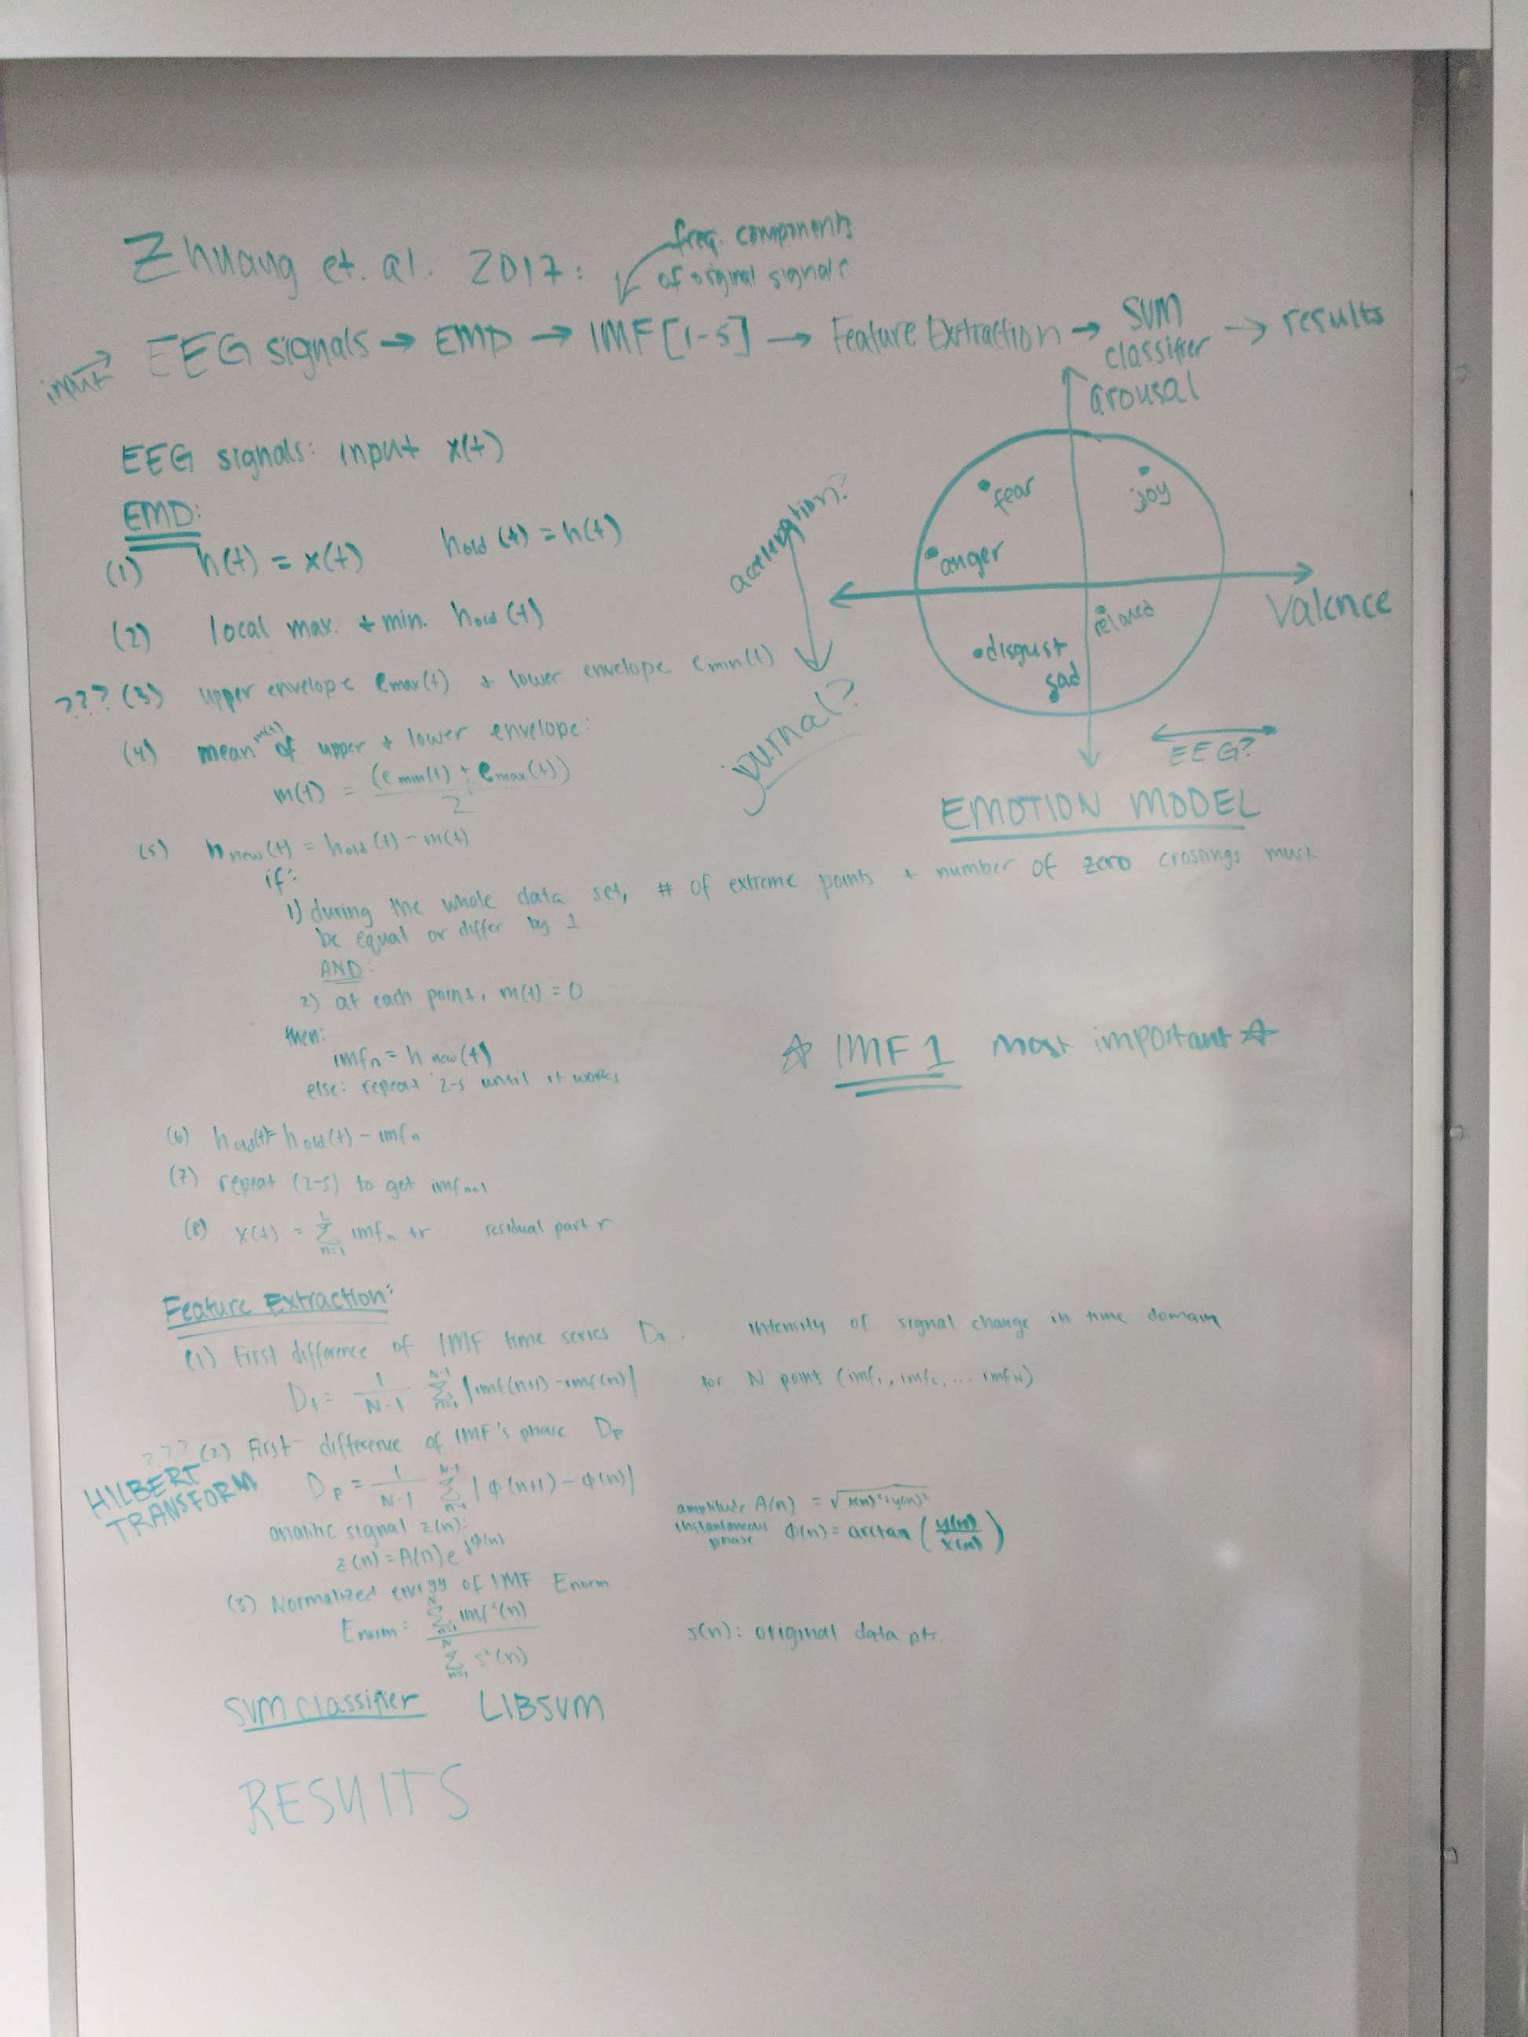 Zhuang et. al. 2017:
freq. components
of original signals
input → EEG signals → EMD → IMF [1-5] → Feature Extraction → SVM classifier → results
EEG signals: input x(t)
EMD:
(1) h(t) = x(t) hold (t) = h(t)
(2) local max. + min. hold (t)
??? (3) upper envelope emax(t) + lower envelope emin(t)
(4) mean m(t) of upper + lower envelope:
m(t) = (emin(t) + emax(t)) / 2
(5) hnew(t) = hold(t) - m(t)
if:
1) during the whole data set, # of extreme points + number of zero crossings must
be equal or differ by 1
AND:
2) at each point, m(t) = 0
then:
imfn = hnew(t)
else: repeat 2-5 until it works
(6) hold(t) = hold(t) - imfn
(7) repeat (2-5) to get imfn+1
(8) x(t) = Σ n=1 imfn + r residual part r
arousal
fear
joy
anger
Valence
relaxed
disgust
sad
acceleration?
journal?
EEG?
EMOTION MODEL
☆ IMF 1 most important ☆
Feature Extraction:
(1) First difference of IMF time series Dt. intensity of signal change in time domain
Dt = 1/N-1 Σ N-1 n=1 |imf(n+1) - imf(n)| for N point (imf1, imf2, ... imfN)
??? (2) First difference of IMF's phase Dp
HILBERT
TRANSFORM
Dp = 1/N-1 Σ N-1 n=1 |φ(n+1) - φ(n)|
analitic signal z(n):
z(n) = A(n)e^jφ(n)
amplitude A(n) = √x(n)²+y(n)²
instantaneous phase φ(n) = arctan (y(n)/x(n))
(3) Normalized energy of IMF Enorm
Enorm: Σ N n=1 imf²(n) / Σ N n=1 s²(n) s(n): original data pts.
SVM classifier LIBSVM
RESULTS